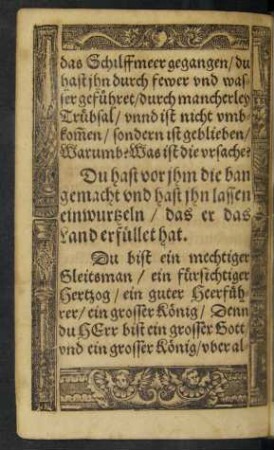 das Schilffmeer gegangen/ du
hast jhn durch fewer vnd was-
ser geführet/ durch mancherley
Trübsal/ vnnd ist nicht vmb-
kom̃en/ sondern ist geblieben/
Warumb? Was ist die vrsache?
Du hast vor jhm die ban
gemacht vnd hast jhn lassen
einwurtzeln/ das er das
Land erfüllet hat.
Du bist ein mechtiger
Gleitsman/ ein fürsichtiger
Hertzog/ ein guter Heerfüh-
rer/ ein grosser König/ Denn
du HErr bist ein grosser Gott
vnd ein grosser König/ vber al-